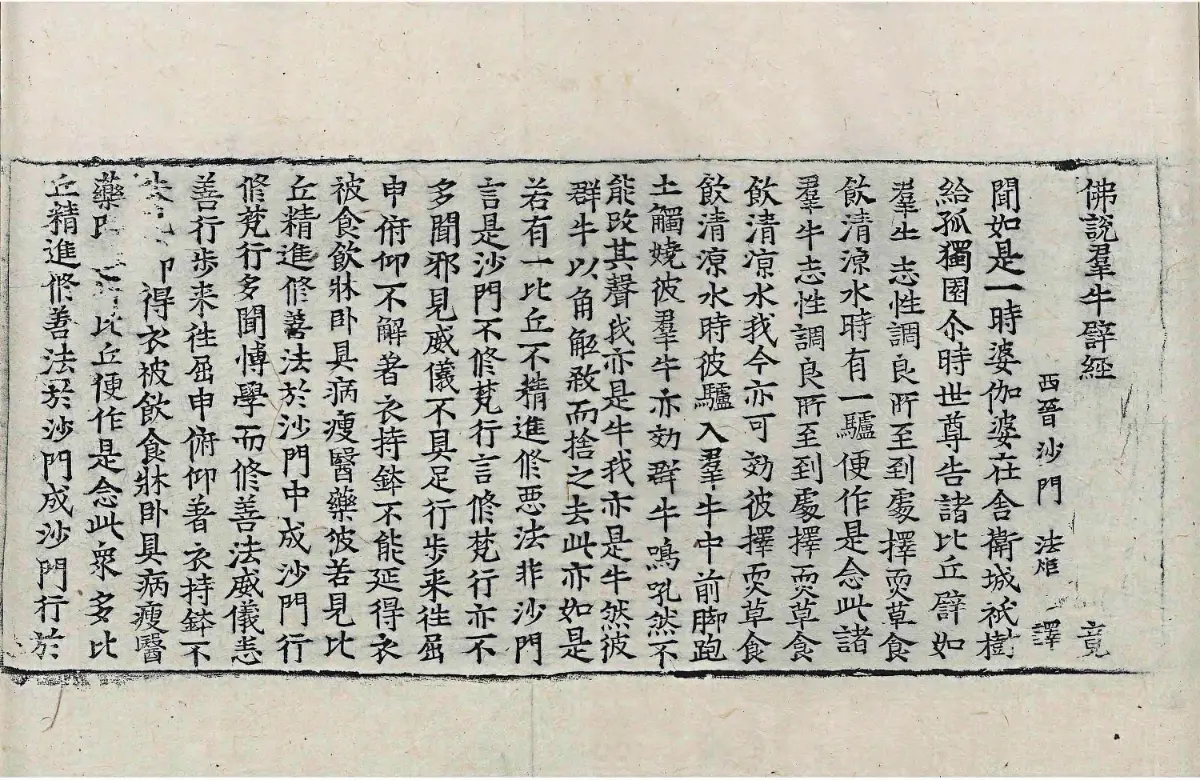 佛說羣牛譬經 竟
西晉沙門 法炬 譯
聞如是一時婆伽婆在舍衛城祇樹
給孤獨園尒時世尊告諸比丘譬如
羣牛志性調良所至到處擇耎草食
飲清涼水時有一驢便作是念此諸
羣牛志性調良所至到處擇耎草食
飲清涼水我今亦可効彼擇耎草食
飲清涼水時彼驢入羣牛中前脚跑
土觸嬈彼羣牛亦効群牛鳴吼然不
能改其聲我亦是牛我亦是牛然彼
群牛以角觝殺而捨之去此亦如是
若有一比丘不精進修惡法非沙門
言是沙門不修梵行言修梵行亦不
多聞邪見威儀不具足行步来往屈
申俯仰不解著衣持鉢不能延得衣
被食飲牀卧具病瘦醫藥彼若見比
丘精進修善法於沙門中成沙門行
修梵行多聞博學而修善法威儀悉
善行步来往屈申俯仰著衣持鉢不
得衣被飲食牀卧具病瘦醫
藥 比丘便作是念此衆多比
丘精進修善法於沙門成沙門行於